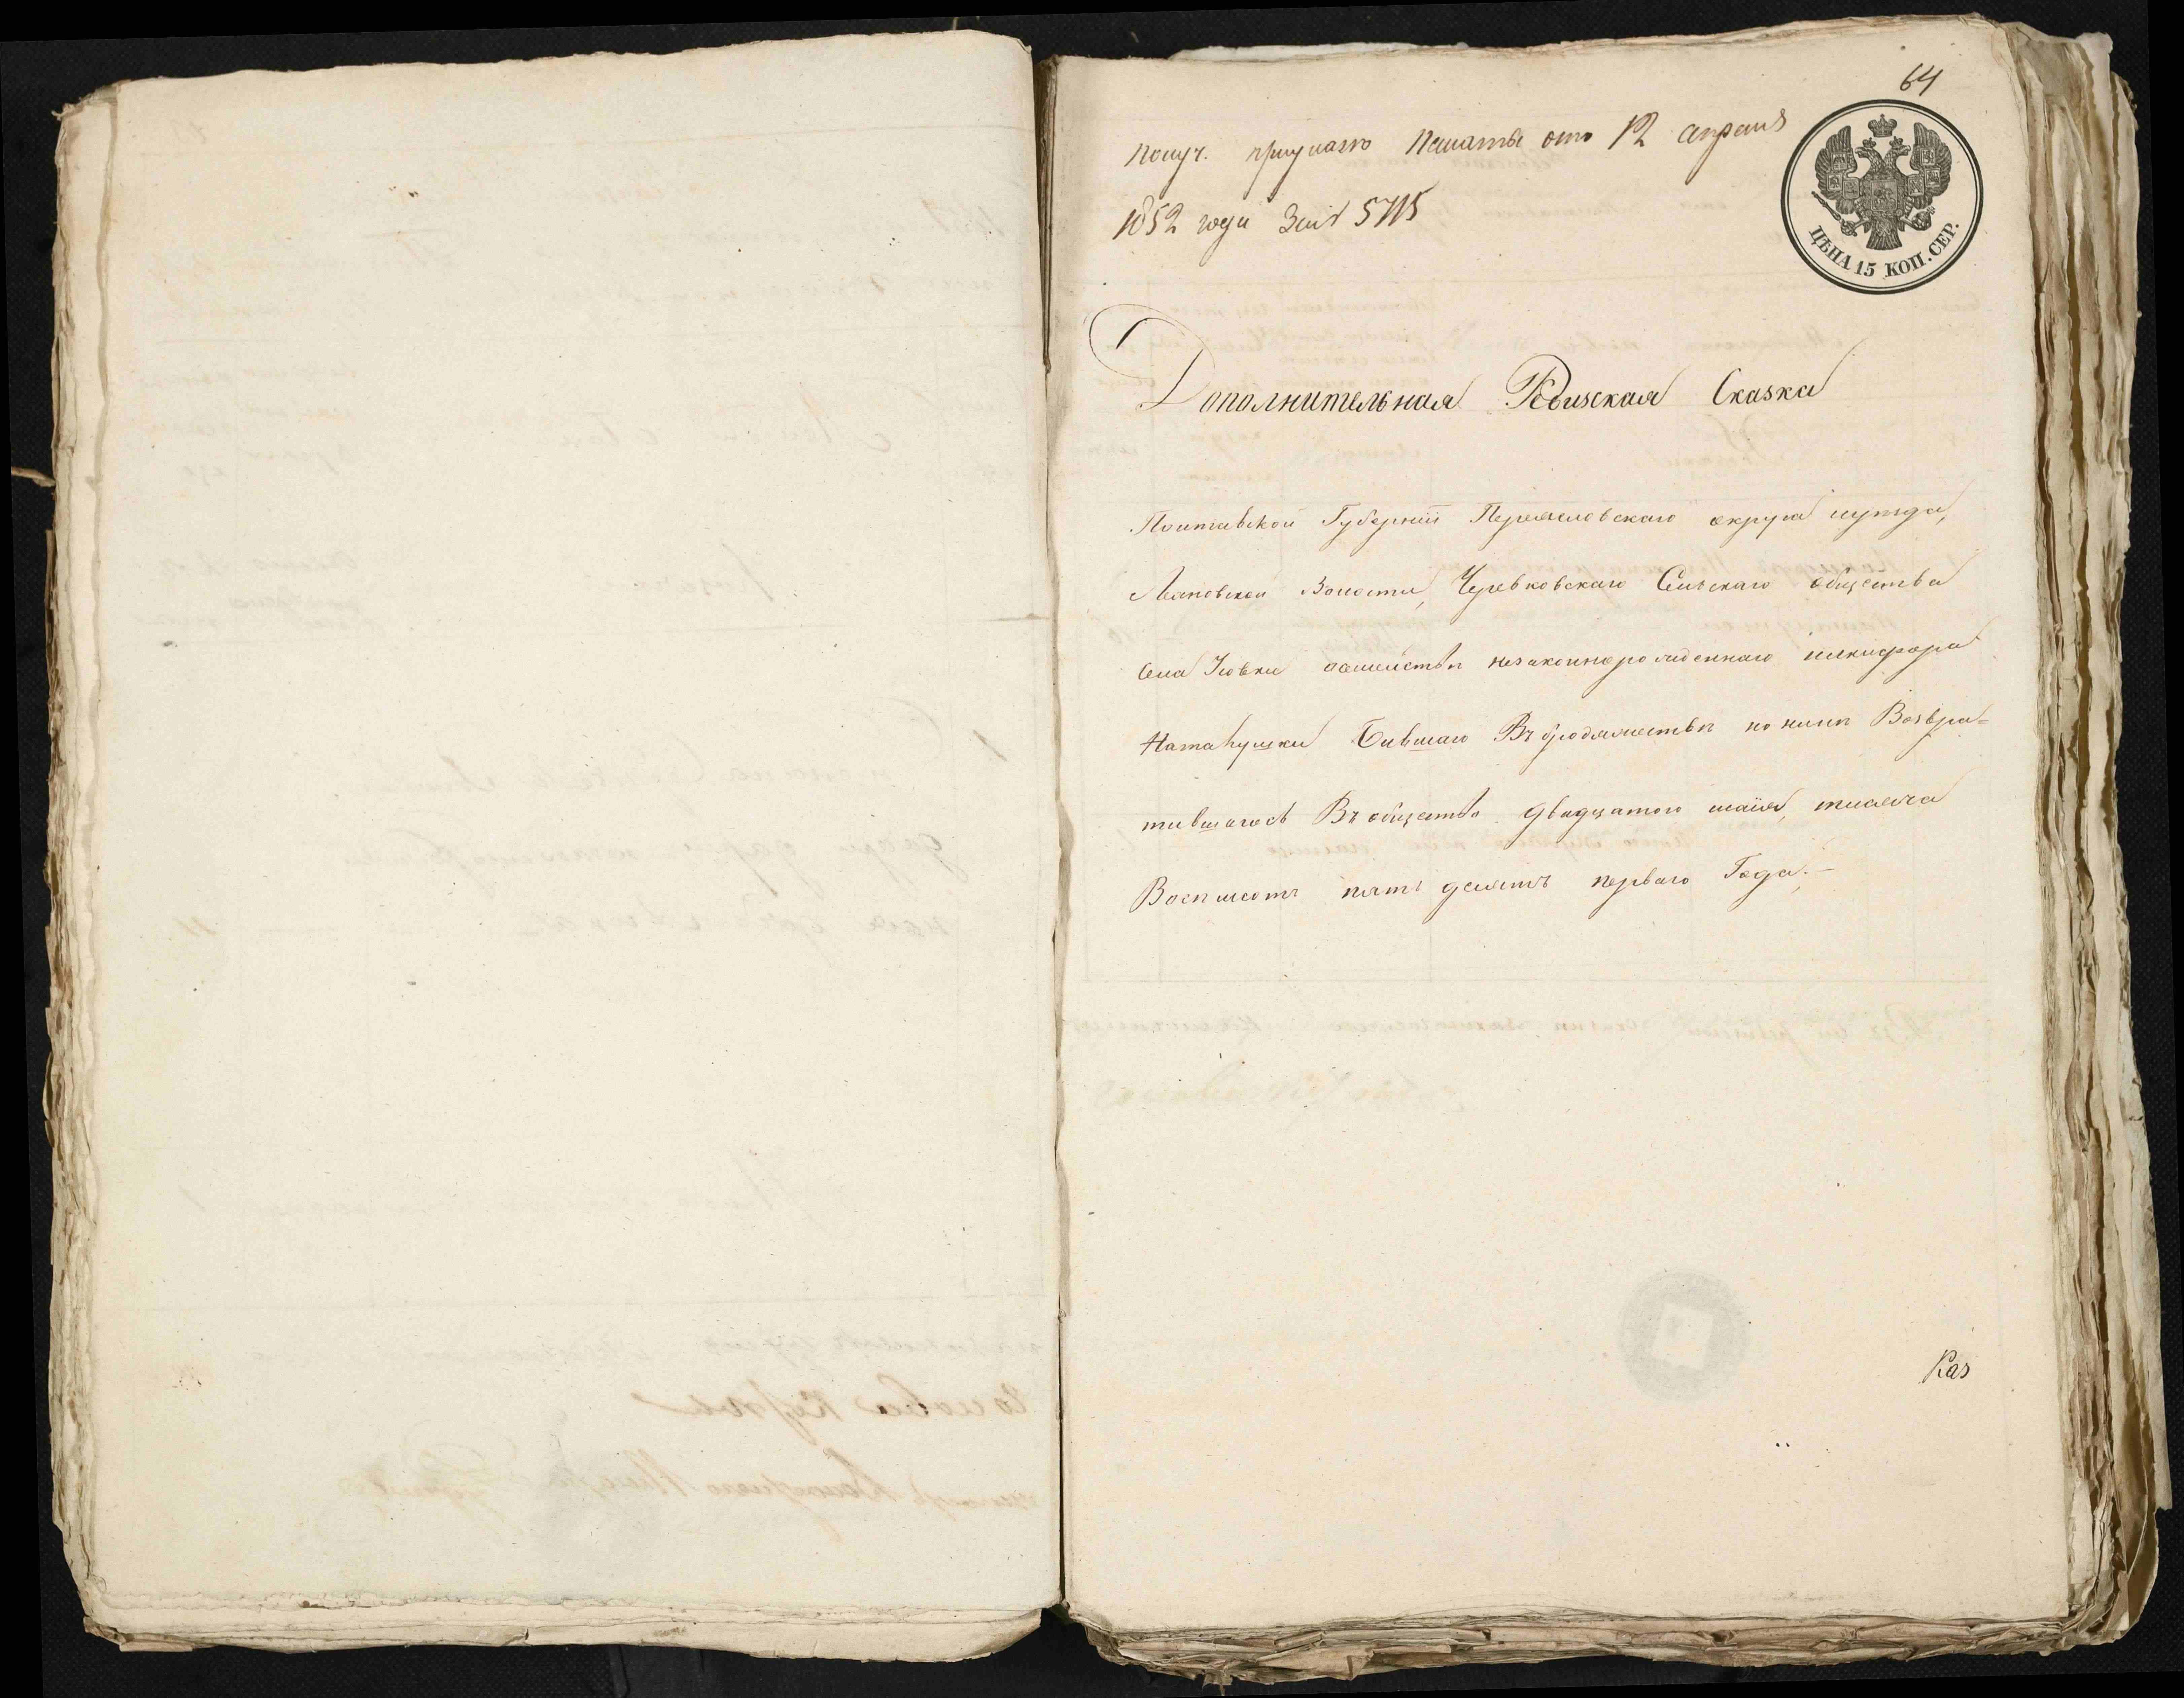 64
Получ. при указѣ Палаты отъ 12 апреля
1852 года За № 5715
ЦѢНА 15 КОП. СЕР.
Дополнительная Ревизская Сказка
Полтавской Губерніи Переясловскаго округа иуезда,
Леповской Волости, Чревковскаго Сельскаго общества
Села осемействѣ незаконнорожденнаго никифора
Бывшаго Въ бродяжествѣ но нынѣ Возвра=
тившагось Въ общество двадцатого маія, тисяча
Восѣмсотъ пять десятъ перваго Года.-
Каз